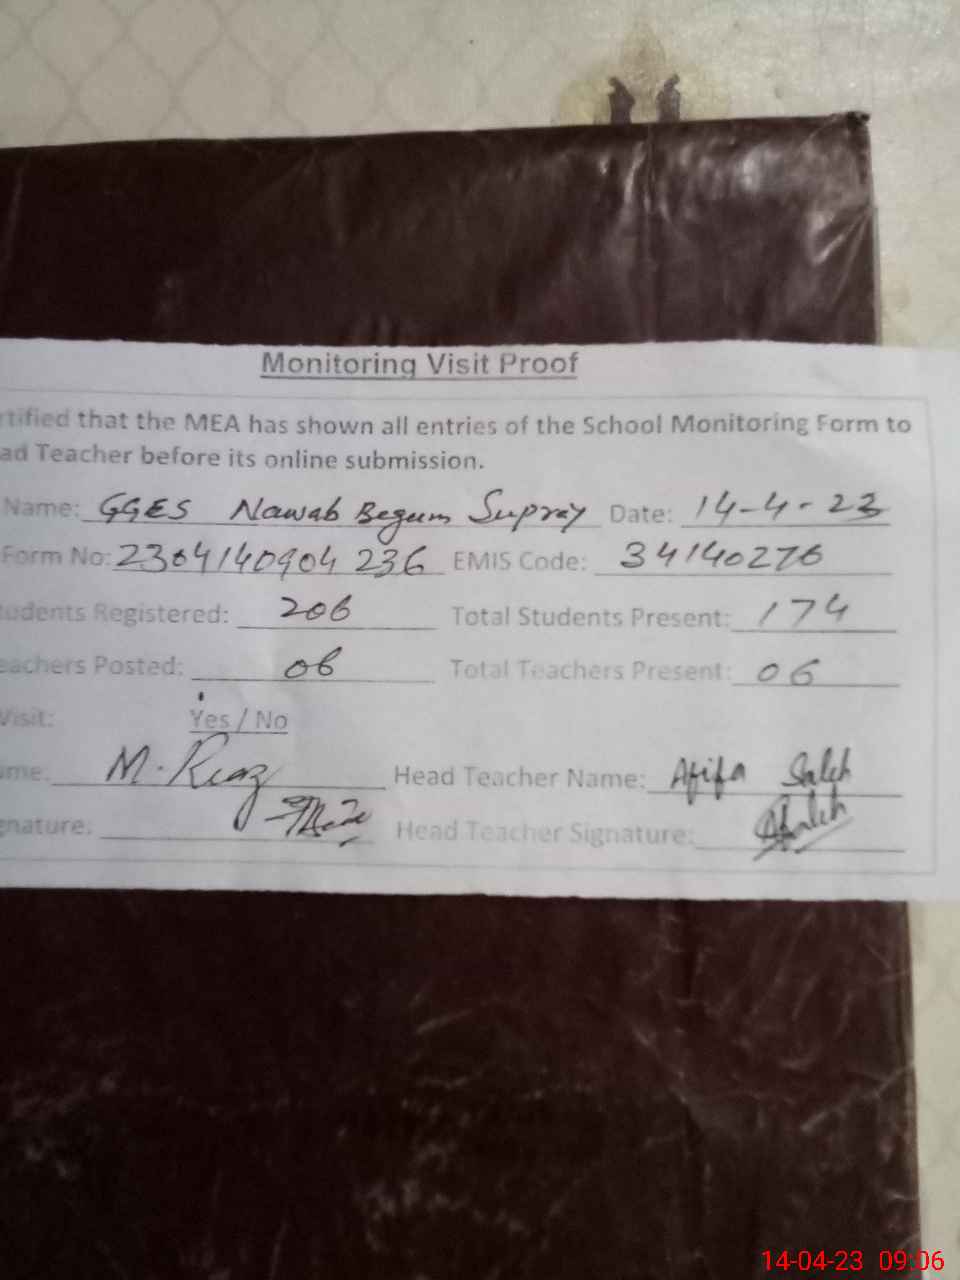 Monitoring Visit Proof
rtified that the MEA has shown all entries of the School Monitoring Form to
ad Teacher before its online submission.
Name: GGES Nawab Begum Supray Date: 14-4-23
Form No: 2304140904 236 EMIS Code: 34140276
tudents Registered: 206 Total Students Present: 174
eachers Posted: 06 Total Teachers Present: 06
Visit: Yes / No
ame: M. Riaz Head Teacher Name: Afifa Saleh
gnature: Head Teacher Signature:
14-04-23 09:06